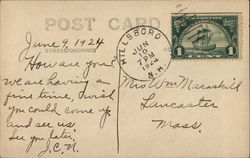 POST CARD
CORRESPONDENCE
June 9, 1924
How are you
we are having a
fine time, wish
you could come up
and see us.
See you later
J.C.N.
HILLSBORO
JUN
10
7 PM
1924
N.H.
1
1
Mrs Wm Macaskill
Lancaster
Mass.